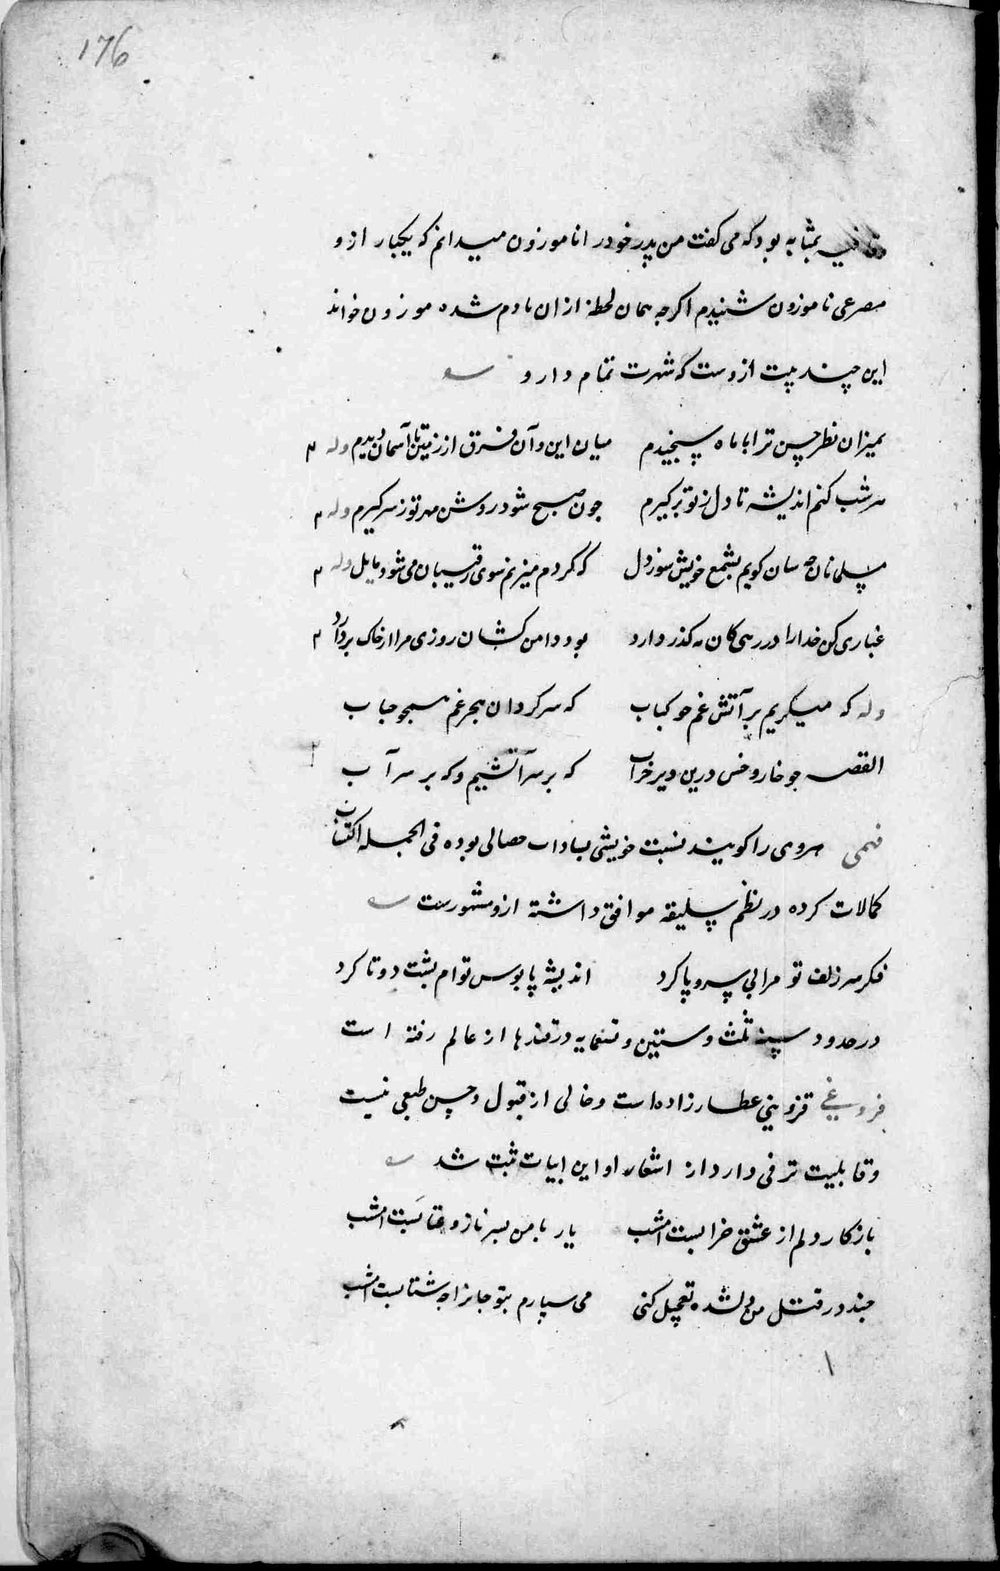 176
قافیه بمثابه بود که می کفت من پدر خود را ناموزون میدانم که یکبار ازو
مصرعی ناموزون شنیدم اکرچه همان لحظه ازان نادم شده موزون خواند
این چند بیت ازوست که شهرت تمام دارد
بمیزان نظر حسن ترا با ماه سنجیدم میان این و آن فرق از زمین تا آسمان دیدم وله
هر شب کنم اندیشه تا دل ز تو برکیرم چون صبح شود روشن مهر تو ز سر کیرم وله
پسلی نان چه سان کویم بشمع خویش سوز دل که کر دم میزنم سوی رقیبان می شود مایل وله
غباری کن خدا را در رهی کان مه کذر دارد بود دامن کشان روزی مرا از خاک بردارد
وله که میکریم بر آتش غم جو کباب که سرکردان بحر غم همجو حباب
القصه جو خار و خس درین دیر خراب که بر سر آتشیم و که بر سر آب
فهمی هروی را کویند نسبت خویشی بسادات حصالی بوده فی الجمله اکتساب
کمالات کرده در نظم سلیقه موافق داشته ازو مشهورست
فکر سر زلف تو مرا بی سر و پا کرد اندیشه پابوس توام پشت دوتا کرد
در حدود سنه ثلث و ستین و تسعمایه در قندهار از عالم رفته است
فروغی قزوینی عطار زاده است و خالی از قبول و حسن طبعی نیست
و قابلیت ترقی دارد از اشعار او این ابیات ثبت شد
باز کار دلم از عشق خرابست امشب یار با من بسر ناز و عتابست امشب
چند در قتل من دلشده تعجیل کنی می سپارم بتو جانرا چه شتابست امشب
۱